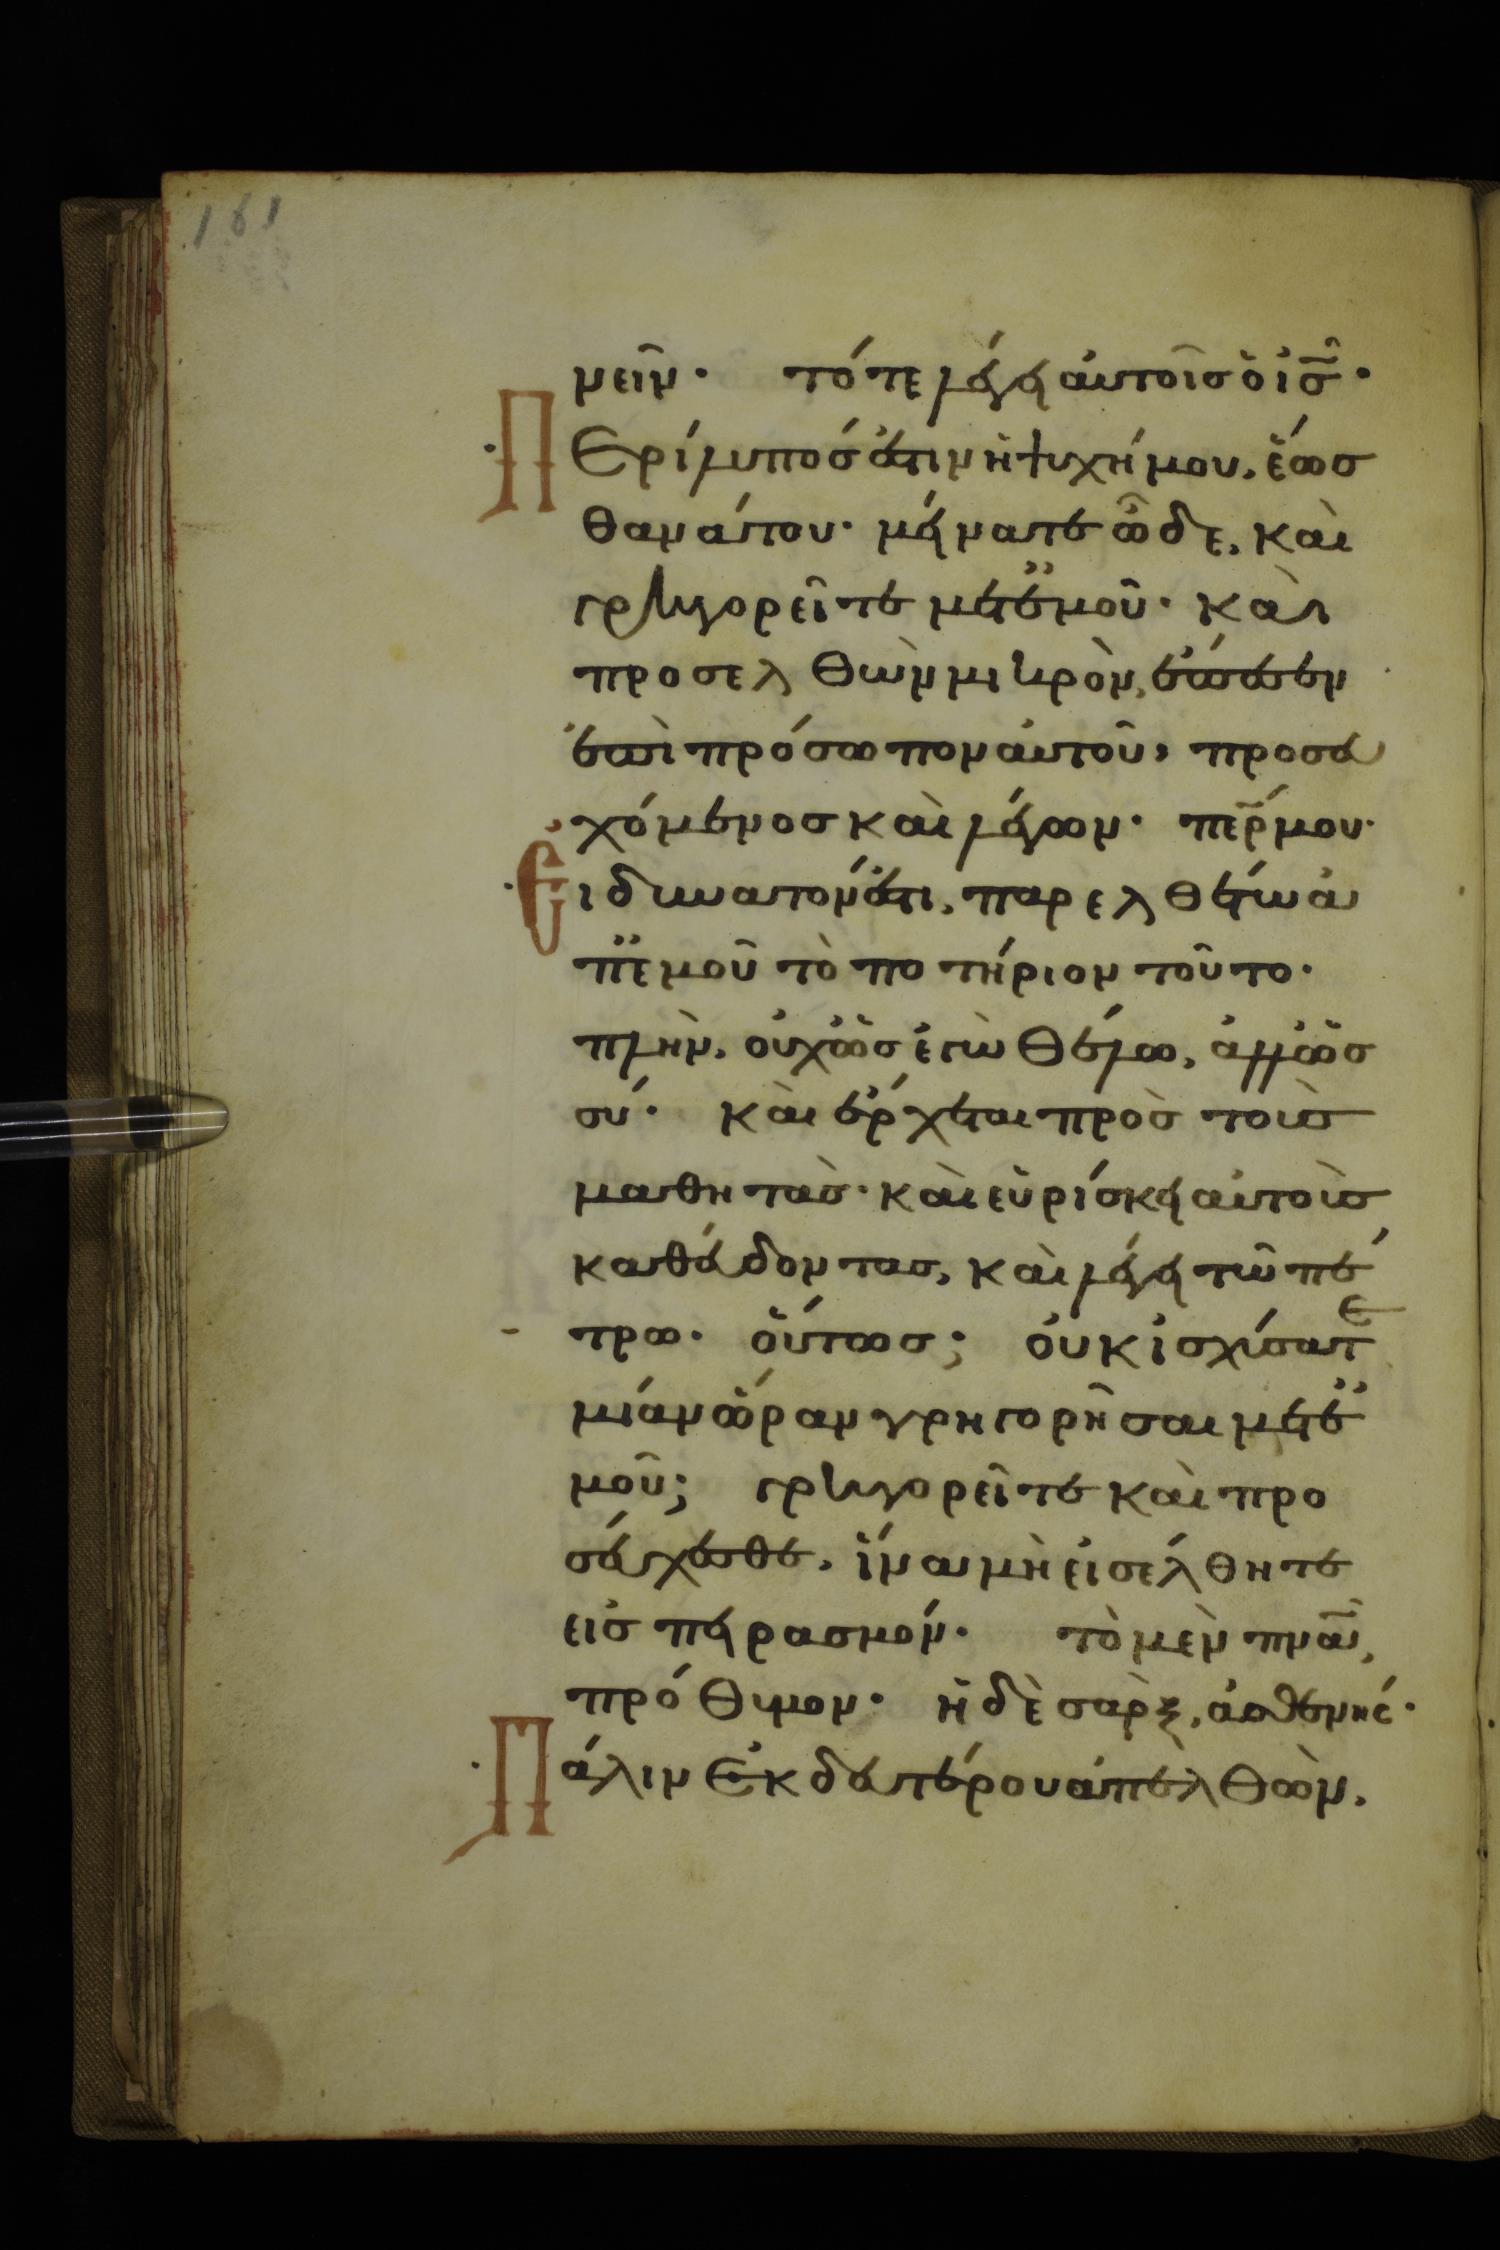 161
νεῖν· τότε λέγει αὐτοῖς ὁ ἰ̅ς̅·
Περίλυπός ἐστιν ἡ ψυχή μου, ἕως
θανάτου· μείνατε ὧδε, καὶ
γρηγορεῖτε μετ' ἐμοῦ· καὶ
προσελθὼν μικρὸν, ἔπεσεν
ἐπὶ πρόσωπον αὐτοῦ, προσευ
χόμενος καὶ λέγων· πε̅ρ μου·
Εἰ δυνατόν ἐστι, παρελθέτω ἀ
π' ἐμοῦ τὸ ποτήριον τοῦτο·
πλὴν, οὐχ ὡς ἐγὼ θέλω, ἀλλ' ὡς
σύ· καὶ ἔρχεται πρὸς τοὺς
μαθητὰς· καὶ εὑρίσκει αὐτοὺς
καθεύδοντας, καὶ λέγει τῶ πέ
τρω· οὕτως; οὐκ ἰσχύσατε
μίαν ὥραν γρηγορῆσαι μετ' ἐ
μοῦ; γρηγορεῖτε καὶ προ
σεύχεσθε, ἵνα μὴ εἰσέλθητε
εἰς πειρασμόν· τὸ μὲν πν̅α̅,
πρόθυμον· ἡ δὲ σὰρξ, ἀσθενής·
Πάλιν ἐκ δευτέρου ἀπελθὼν,